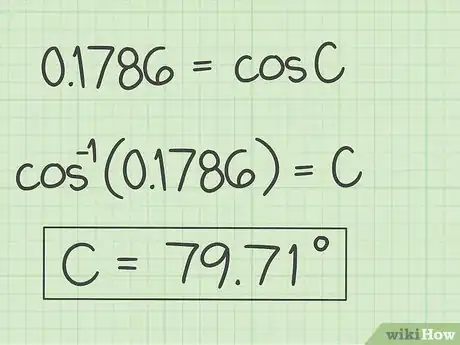 0.1786 = cos C
cos⁻¹(0.1786) = C
C = 79.71°
wikiHow